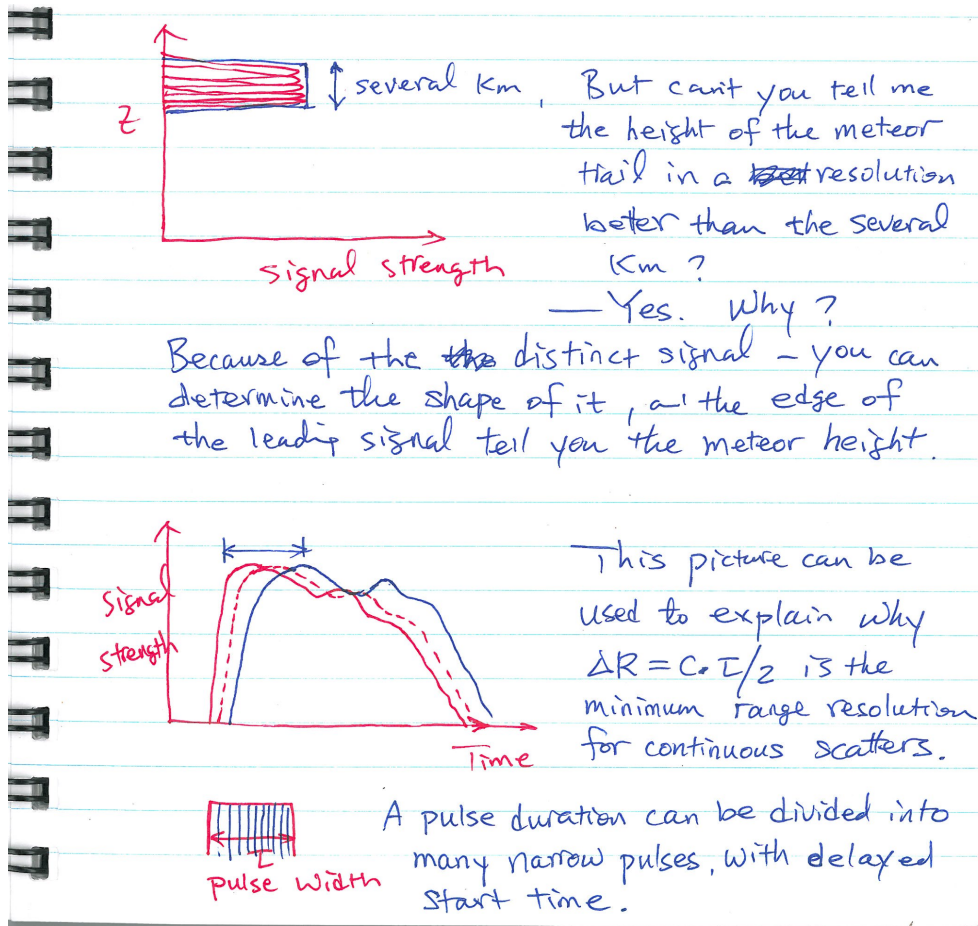 Z
several km, But can't you tell me
the height of the meteor
trail in a resolution
beter than the several
Km ?
signal strength
— Yes. Why ?
Because of the distinct signal – you can
determine the shape of it, and the edge of
the leading signal tell you the meteor height.
This picture can be
used to explain why
ΔR = C·τ/2 is the
minimum range resolution
for continuous scatters.
Signal
strength
Time
A pulse duration can be divided into
many narrow pulses, with delayed
start time.
τ
pulse width